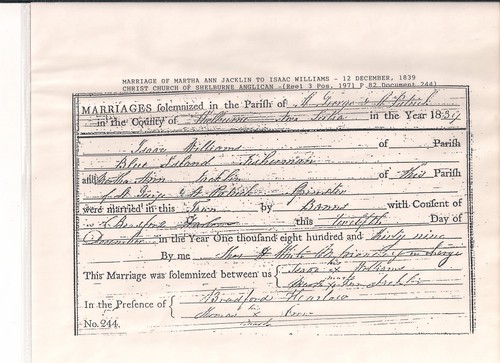 MARRIAGE OF MARTHA ANN JACKLIN TO ISAAC WILLIAMS - 12 DECEMBER, 1839
CHRIST CHURCH OF SHELBURNE ANGLICAN -(Reel 3 Pos. 1971 P 82 Document 244)
MARRIAGES solemnized in the Parish of St George & St Patrick
in the County of Shelburne Nova Scotia in the Year 1839
Isaac Williams of Parish
Blue Island Fisherman
and Martha Ann Jacklin of this Parish
of St George & St Patrick Spinster
were married in this Town by Banns with Consent of
Bradford Harlow this Twelfth Day of
December in the Year One thousand eight hundred and thirty nine
By me Thos H White in charge
This Marriage was solemnized between us { Isaac his x mark Williams
Martha Ann Jacklin
In the Presence of { Bradford Harlow
Thomas his x mark
No. 244.